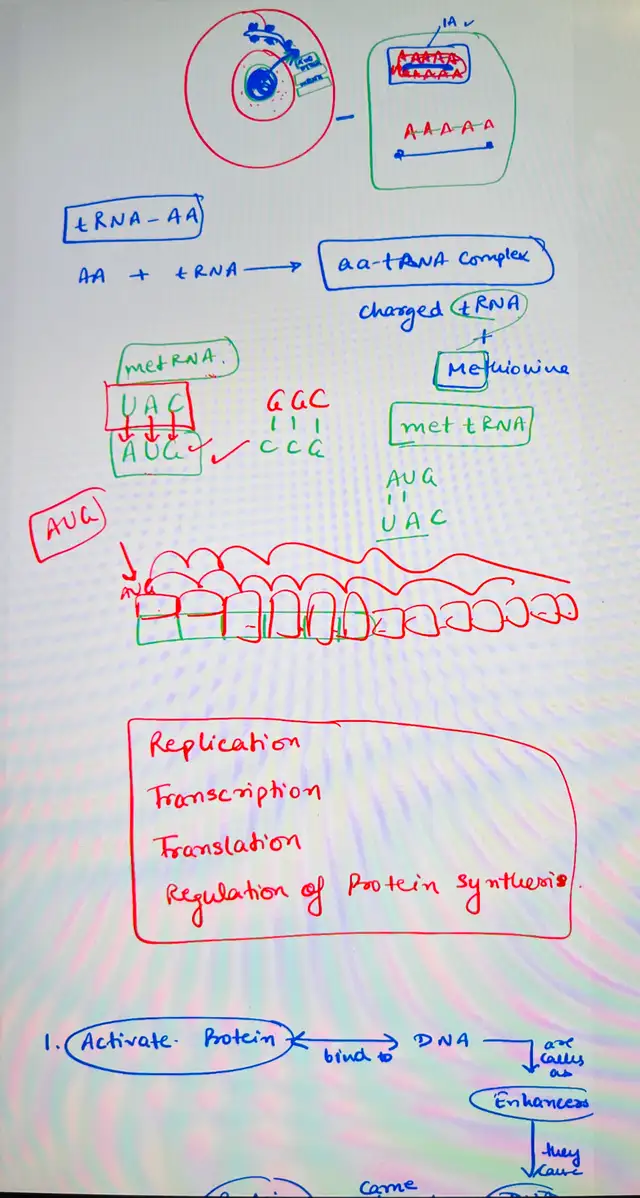 1A
AAAAA
AAAAA
A-A-A-A-A
tRNA-AA
AA + tRNA → aa-tRNA Complex
charged tRNA
+
Methionine
metRNA.
met tRNA
UAC
AUG
GGC
CCG
AUG
UAC
AUG
AUG
Replication
Transcription
Translation
Regulation of Protein synthesis.
1. Activate. Protein bind to DNA are
called
as
Enhancers
they
cause
came